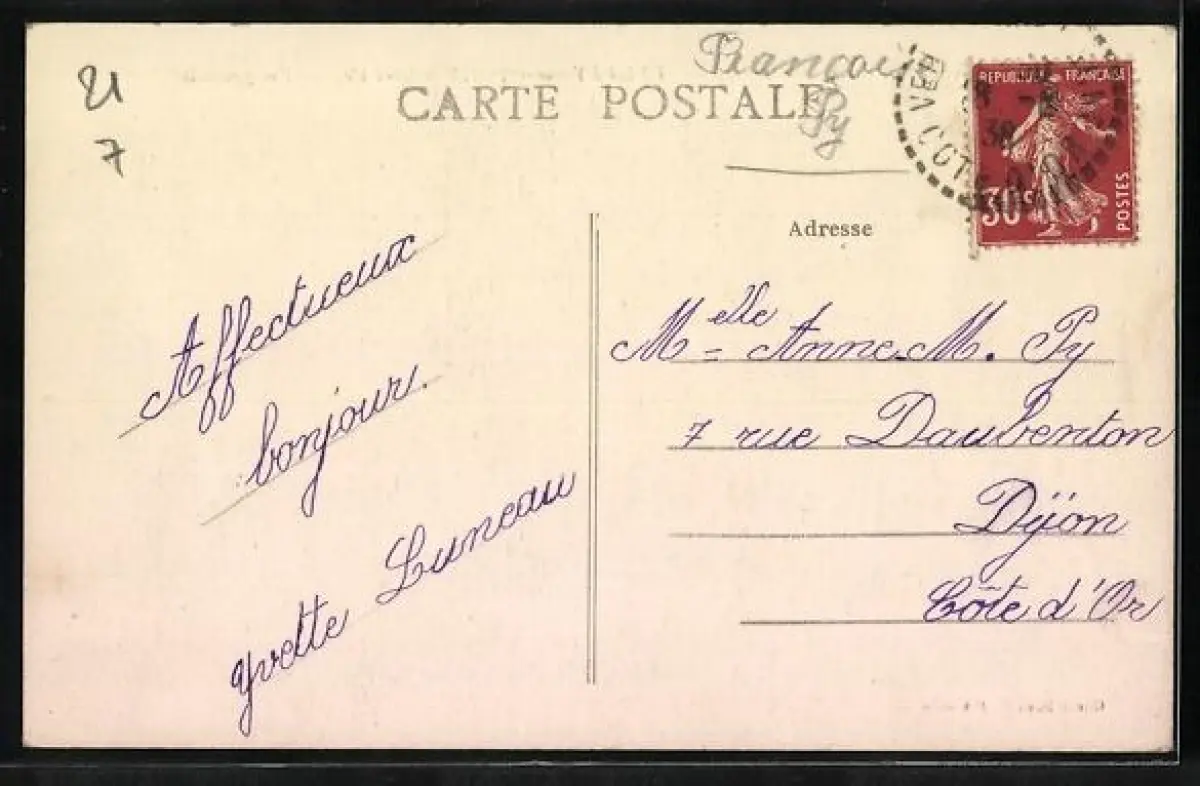 21
7
François
Py
CARTE POSTALE
REPUBLIQUE FRANÇAISE
30c
POSTES
38
Adresse
Affectueux
bonjour.
Yvette Luneau
Melle Anne. M. Py
7 rue Daubenton
Dijon
Côte d'Or